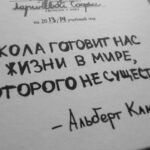 на 2013/14 учебный год
КОЛА ГОТОВИТ НАС
ЖИЗНИ В МИРЕ,
ОТОРОГО НЕ СУЩЕСТ
– Альберт Кам